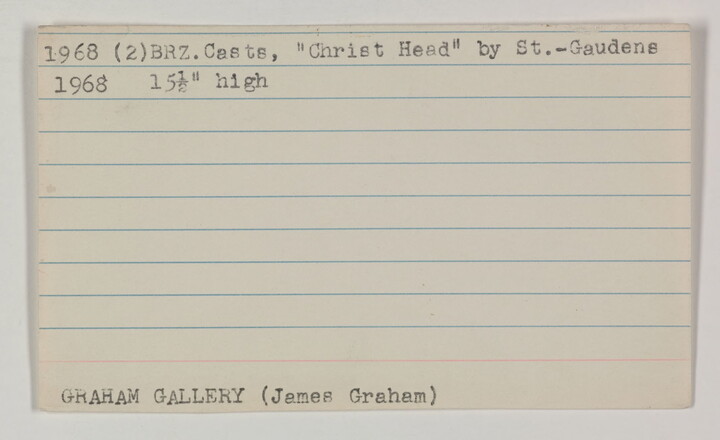 1968 (2)BRZ.Casts, "Christ Head" by St.-Gaudens
1968 15½" high
GRAHAM GALLERY (James Graham)